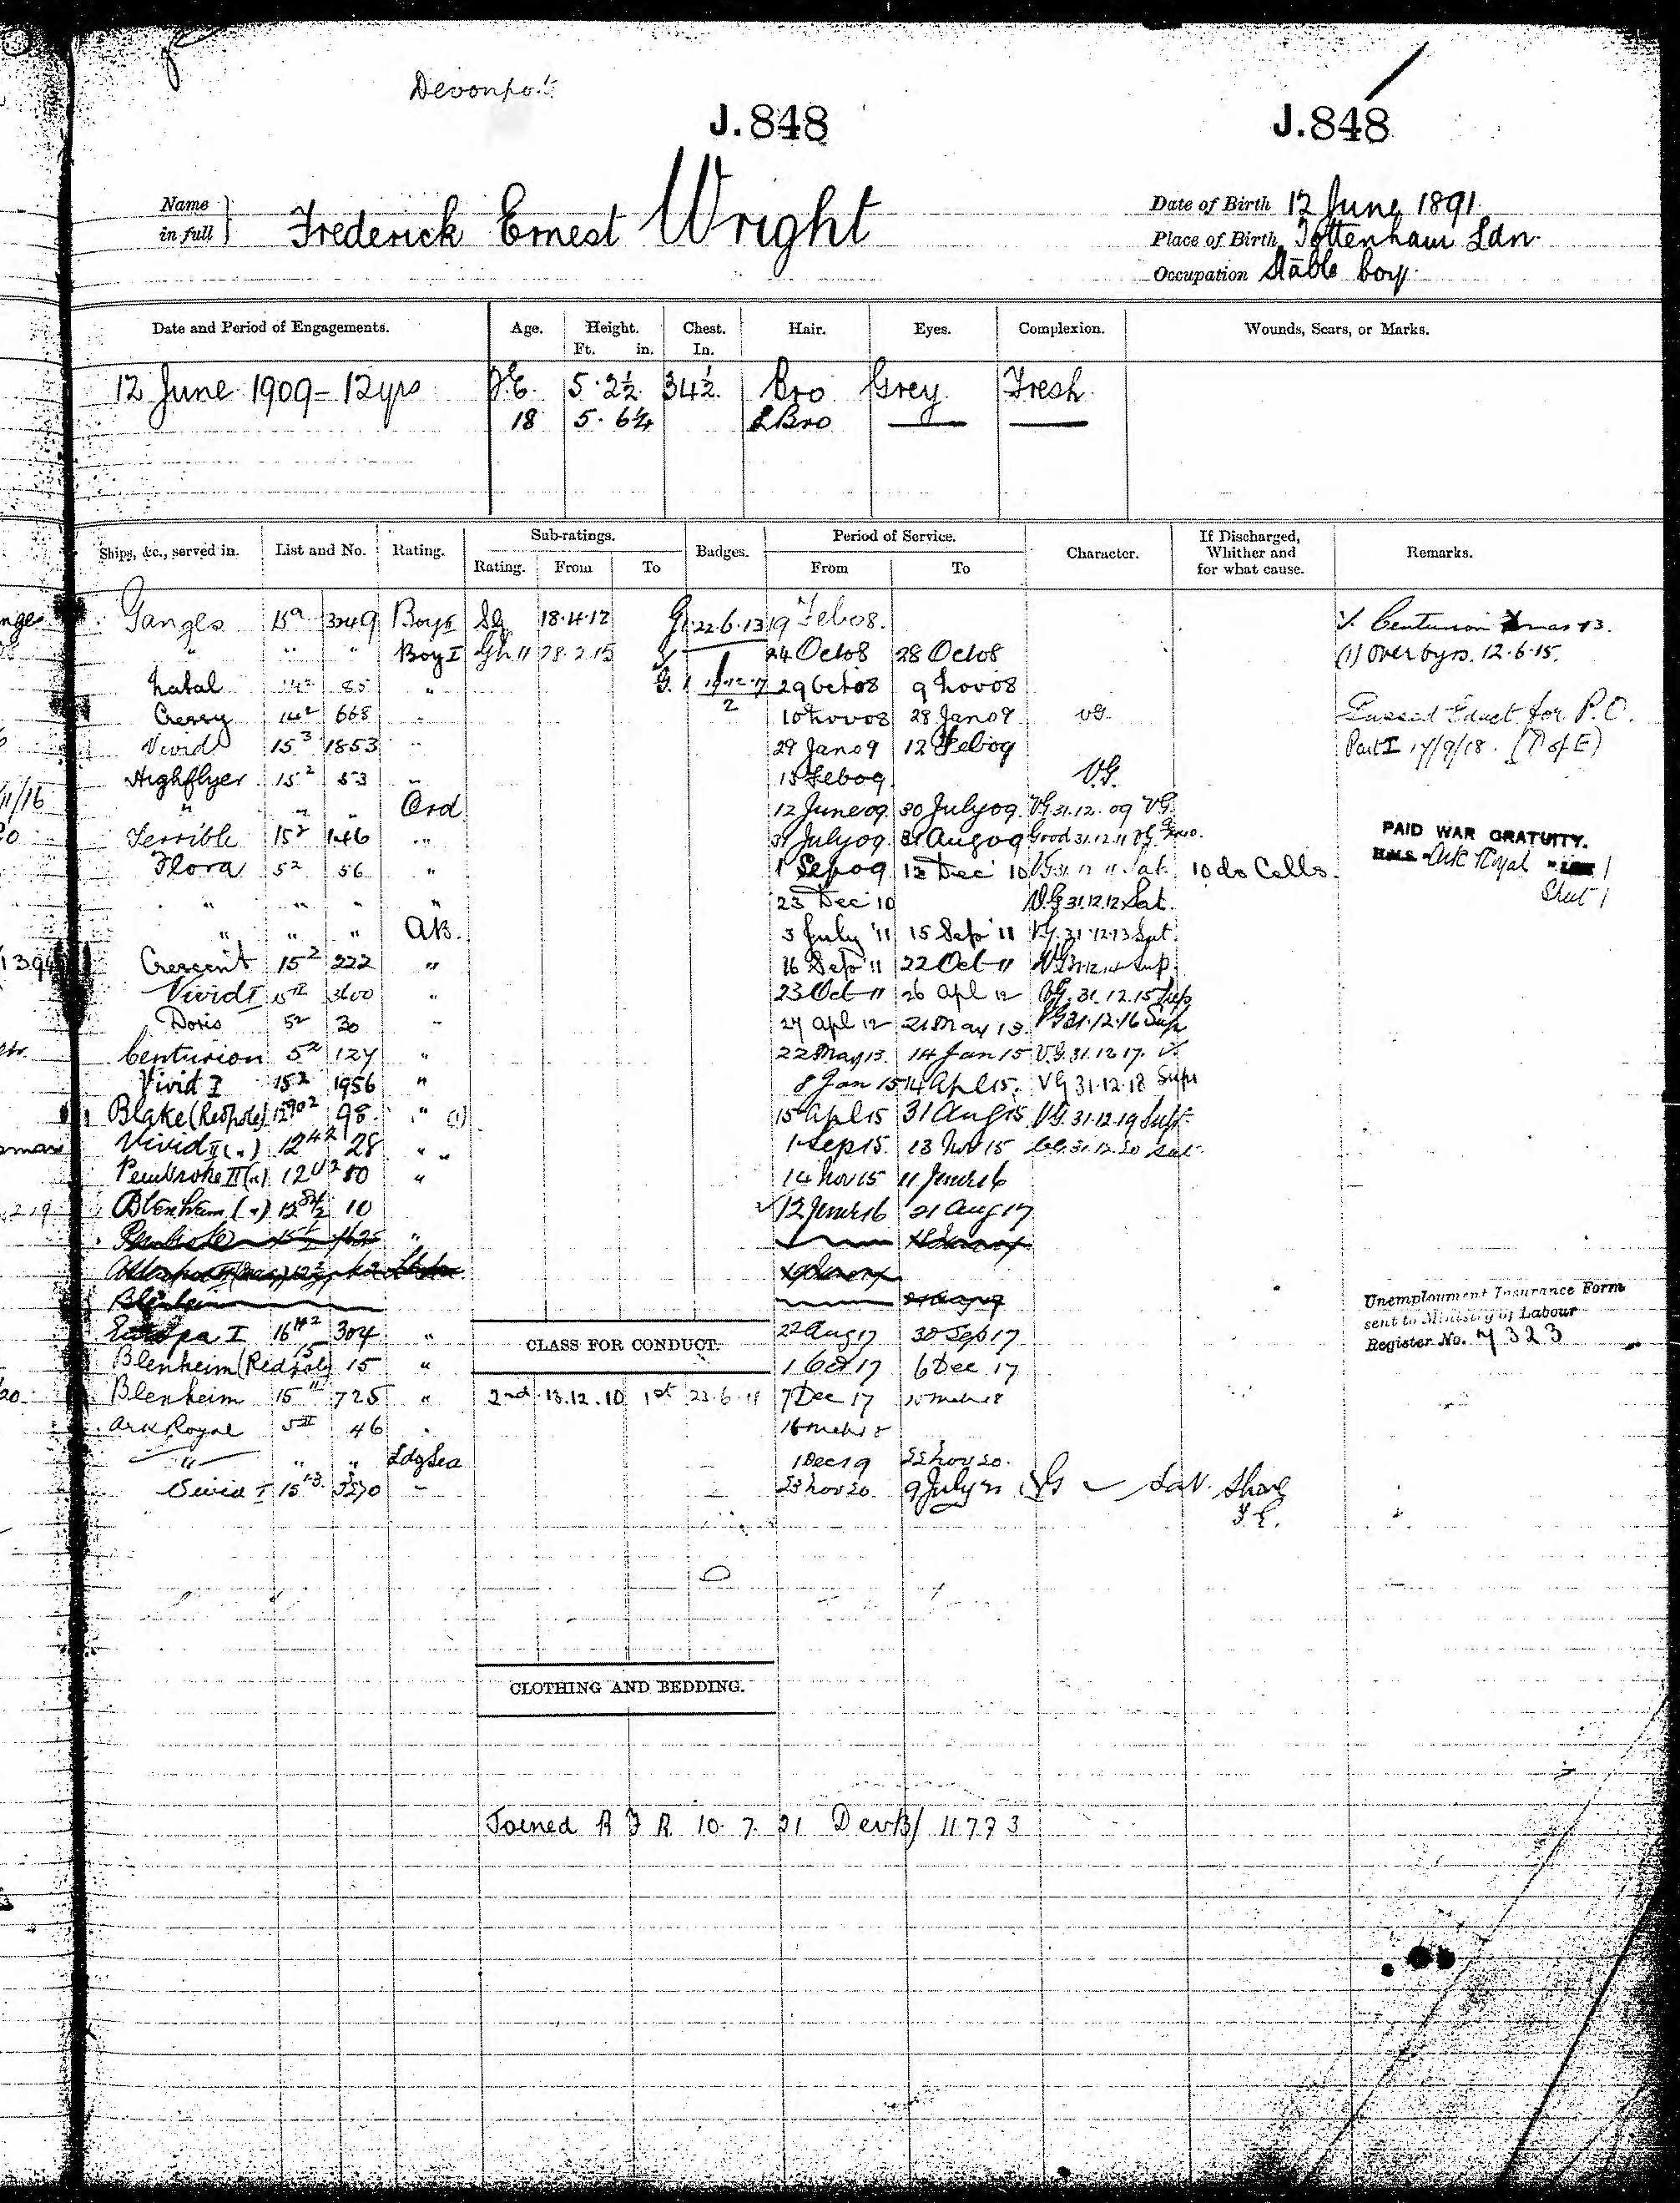 Devonport
J.848 J.848
Name in full } Frederick Ernest Wright
Date of Birth 12 June 1891
Place of Birth Tottenham Ldn
Occupation Stable boy
Date and Period of Engagements. Age. Height. Ft. in. Chest. In. Hair. Eyes. Complexion. Wounds, Scars, or Marks.
12 June 1909 - 12 yrs 5. 2½ 34½ Bro Grey Fresh
18 5. 6¼ L Bro — —
Ships, &c., served in. List and No. Rating. Sub-ratings. Rating. From To Badges. Period of Service. From To Character. If Discharged, Whither and for what cause. Remarks.
Ganges 15a 3249 Boy II SG 18.4.12 G1 22.6.13 19 Feb 08. Centurion Xmas 13.
" " " Boy I 28.2.15 24 Oct 08 28 Oct 08 (1) Over by rs. 12.6.15.
Natal 14² 85 " 29 Oct 08 9 Nov 08
Cressy 14² 668 " 10 Nov 08 28 Jan 09 VG Passed Educt for P.O.
Vivid 15³ 1853 " 29 Jan 09 12 Feb 09 Part I 17/9/18. (P of E)
Highflyer 15² 53 " 13 Feb 09 V.G.
" " " Ord 12 June 09 30 July 09 VG 31.12.09 VG
Terrible 15² 146 " 31 July 09 31 Aug 09 Good 31.12.11
PAID WAR GRATUITY.
H.M.S. Ark Royal
Flora 5² 56 " 1 Sep 09 12 Dec 10 Sat 10 ds Cells
Sheet 1
" " " " 23 Dec 10 V.G 31.12.12 Sat.
" " " AB. 3 July 11 15 Sep 11 VG. 31.12.13 Sat.
Crescent 15² 222 " 16 Sep 11 22 Oct 11 VG 31.12.14 Sup.
Vivid I 15II 3600 " 23 Oct 11 26 Apl 12 VG. 31.12.15 Sup
Doris 5² 30 " 27 Apl 12 21 May 13 VG 31.12.16 Sup
Centurion 5² 127 " 22 May 13. 14 Jan 15 V.G. 31.12.17.
Vivid I 15² 1956 " 8 Jan 15 14 Apl 15. VG 31.12.18 Supr
Blake (Redpole) 98 " (1) 15 Apl 15 31 Aug 15 VG. 31.12.19 Supr
Vivid II (") 12 28 " 1 Sep 15. 13 Nov 15 VG. 31.12.20 Sat
Pembroke II (") 12 80 " 14 Nov 15 11 June 16
Blenheim (") 12 10 12 June 16 21 Aug 17
Pembroke
Blenheim
Unemployment Insurance Form
sent to Ministry of Labour
Register No. 7323
Europa I 16 304 " 22 Aug 17 30 Sep 17
CLASS FOR CONDUCT.
Blenheim (Redpole) 15 " 1 Oct 17 6 Dec 17
Blenheim 15 725 " 2nd 13.12.10 1st 23.6.11 7 Dec 17 15 Mch 18
Ark Royal 5II 46 . 16 Mch 18
" " " Ldg Sea 1 Dec 19 22 Nov 20.
Vivid I 15 3270 " 23 Nov 20 9 July 21 VG Sat. Shore
CLOTHING AND BEDDING.
Joined R F R 10. 7. 21 Dev B/ 11773